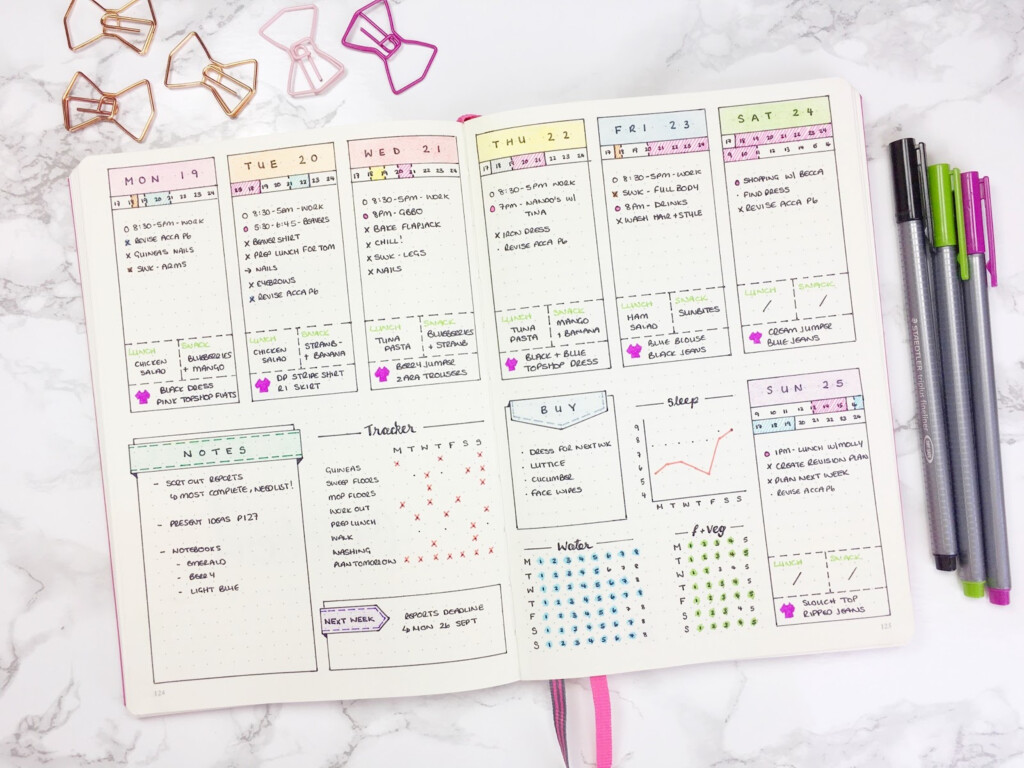 MON 19
17 18 19 20 21 22 23 24
8:30-5PM-WORK
REVISE ACCA P6
GUINEAS NAILS
SWK-ARMS
LUNCH SNACK
CHICKEN SALAD
BLUEBERRIES + MANGO
BLACK DRESS
PINK TOPSHOP FLATS
TUE 20
8:30-5PM-WORK
5:30-6:45-BEAVERS
BEAVER SHIRT
PREP LUNCH FOR TOM
NAILS
EYEBROWS
REVISE ACCA P6
LUNCH SNACK
CHICKEN SALAD
STRAWB- + BANANA
DP STRIPE SHIRT
R1 SKIRT
WED 21
17 18 19 20 21 22 23 24
8:30-5PM-WORK
8PM-GBBO
BAKE FLAPJACK
CHILL!
SWK-LEGS
NAILS
LUNCH SNACK
TUNA PASTA
BLUEBERRIES + STRAWB
BERRY JUMPER
ZARA TROUSERS
THU 22
17 18 19 20 21 22 23 24
8:30-5PM-WORK
7PM-NANDO'S W/
TINA
IRON DRESS
REVISE ACCA P6
LUNCH SNACK
TUNA PASTA
MANGO + BANANA
BLACK + BLUE
TOPSHOP DRESS
FRI 23
17 18 19 20 21 22 23 24
8:30-5PM-WORK
SWK-FULL BODY
8PM-DRINKS
WASH HAIR + STYLE
LUNCH SNACK
HAM SALAD
SUNBITES
BLUE BLOUSE
BLACK JEANS
SAT 24
17 18 19 20 21 22 23 24
9 10 11 12 13 14 15 16
SHOPPING W/ BECCA
FIND DRESS
REVISE ACCA P6
LUNCH SNACK
/ /
CREAM JUMPER
BLUE JEANS
NOTES
- SORT OUT REPORTS
↳ MOST COMPLETE, NEED LIST!
- PRESENT IDEAS P127
- NOTEBOOKS
- EMERALD
- BERRY
- LIGHT BLUE
Tracker
M T W T F S S
GUINEAS
SWEEP FLOORS
MOP FLOORS
WORK OUT
PREP LUNCH
WALK
WASHING
PLAN TOMORROW
NEXT WEEK
REPORTS DEADLINE
↳ MON 26 SEPT
BUY
DRESS FOR NEXT WK
LUTTICE
CUCUMBER
FACE WIPES
Sleep
9
8
7
6
5
4
M T W T F S S
Water
M 1 2 3 4 5 6 7 8
T 1 2 3 4 5 6 7 8
W 1 2 3 4 5 6 7 8
T 1 2 3 4 5 6 7 8
F 1 2 3 4 5 6 7 8
S 1 2 3 4 5 6 7 8
S 1 2 3 4 5 6 7 8
f+veg
M 1 2 3 4 5
T 1 2 3 4 5
W 1 2 3 4 5
T 1 2 3 4 5
F 1 2 3 4 5
S 1 2 3 4 5
S 1 2 3 4 5
SUN 25
9 10 11 12 13 14 15 16
17 18 19 20 21 22 23 24
1PM-LUNCH W/MOLLY
CREATE REVISION PLAN
PLAN NEXT WEEK
REVISE ACCA P6
LUNCH SNACK
/ /
SLOUCH TOP
RIPPED JEANS
124
125
STAEDTLER triplus fineliner